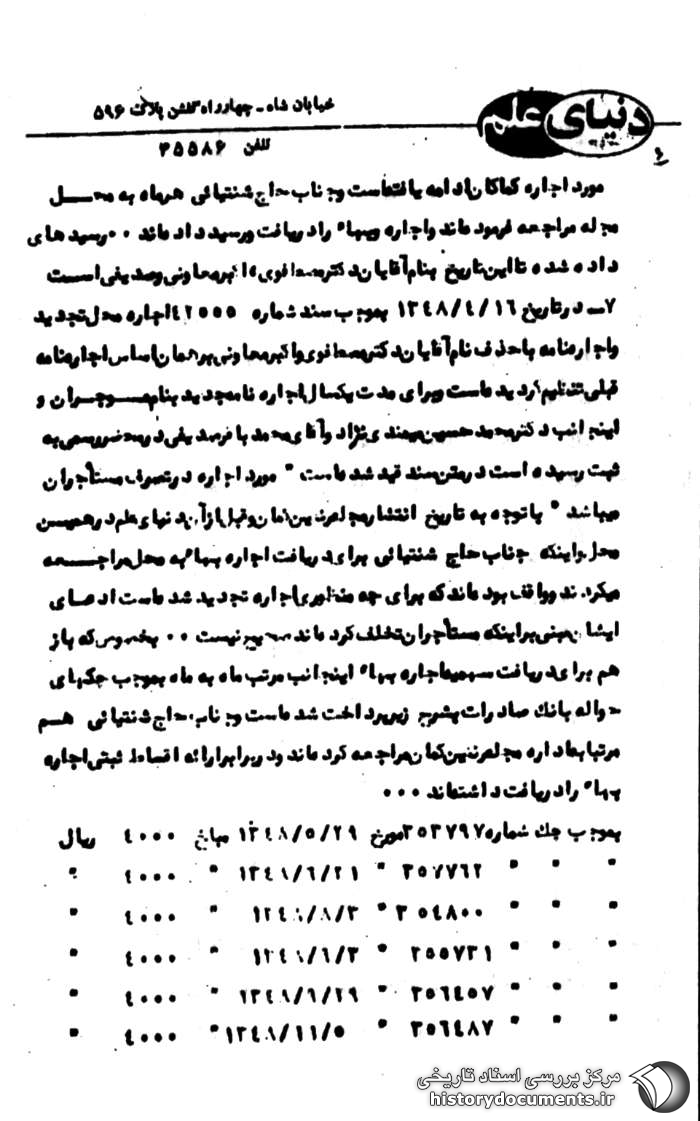 خیابان شاه - چهارراه گلشن پلاک ۵۹۶
دنیای علم
تلفن ۳۵۵۸۶
۶
مورد اجاره کماکان ادامه یافته است و جناب حاج شنتیائی هرماه به محل
مجله مراجعه فرموده اند و اجاره وبها٠ را دریافت ورسید داده اند ٠٠ رسید های
داده شده تا این تاریخ بنام آقایان دکتر اکبر معاونی وصدیقی است
۷ـ در تاریخ ۱۳۴۸/۴/۱۶ بموجب سند شماره ۴۲۵۵۵ اجاره محل تجدید
واجاره نامه با حذف نام آقایان دکتر واکبر معاونی بر همان اساس اجاره نامه
قبلی تنظیم گردیده است وبرای مدت یکسال اجاره نامه جدید بنام موجران و
اینجانب دکتر محمد حسین میمندی نژاد وآقای محمد باقر صدیقی در محضر رسمی به
ثبت رسیده است در متن سند قید شده است " مورد اجاره در تصرف مستأجران
میباشد " با توجه به تاریخ انتشار مجله رنگین کمان وقبل از آن دنیای علم در همین
محل واینکه جناب حاج شنتیائی برای دریافت اجاره بها٠ به محل مراجعه
میکردند وواقف بوده اند که برای چه منظوری اجاره تجدید شده است ادعای
ایشان مبنی براینکه مستأجران تخلف کرده اند صحیح نیست ٠٠ بخصوص که باز
هم برای دریافت سهمیه اجاره بها٠ اینجانب مرتب ماه به ماه بموجب چکهای
حواله بانک صادرات بشرح زیر پرداخت شده است وجناب حاج شنتیائی هم
مرتبا بعاداره مجله رنگین کمان مراجعه کرده اند ودر برابر ارائه اقساط ثبتی اجاره
بها٠ را دریافت داشته اند ٠٠٠
بموجب چک شماره ۳۵۳۷۹۷ مورخ ۱۳۴۸/۵/۲۹ مبلغ ۴۰۰۰ ریال
" " " ۳۵۷۷۶۲ " ۱۳۴۸/۶/۲۱ " ۴۰۰۰ "
" " " ۳۵۴۸۰۰ " ۱۳۴۸/۸/۳ " ۴۰۰۰ "
" " " ۲۵۵۷۳۱ " ۱۳۴۸/۶/۳ " ۴۰۰۰ "
" " " ۳۵۶۴۵۷ " ۱۳۴۸/۹/۲۹ " ۴۰۰۰ "
" " " ۳۵۶۴۸۷ " ۱۳۴۸/۱۱/۵ " ۴۰۰۰ "
مرکز بررسی اسناد تاریخی
historydocuments.ir